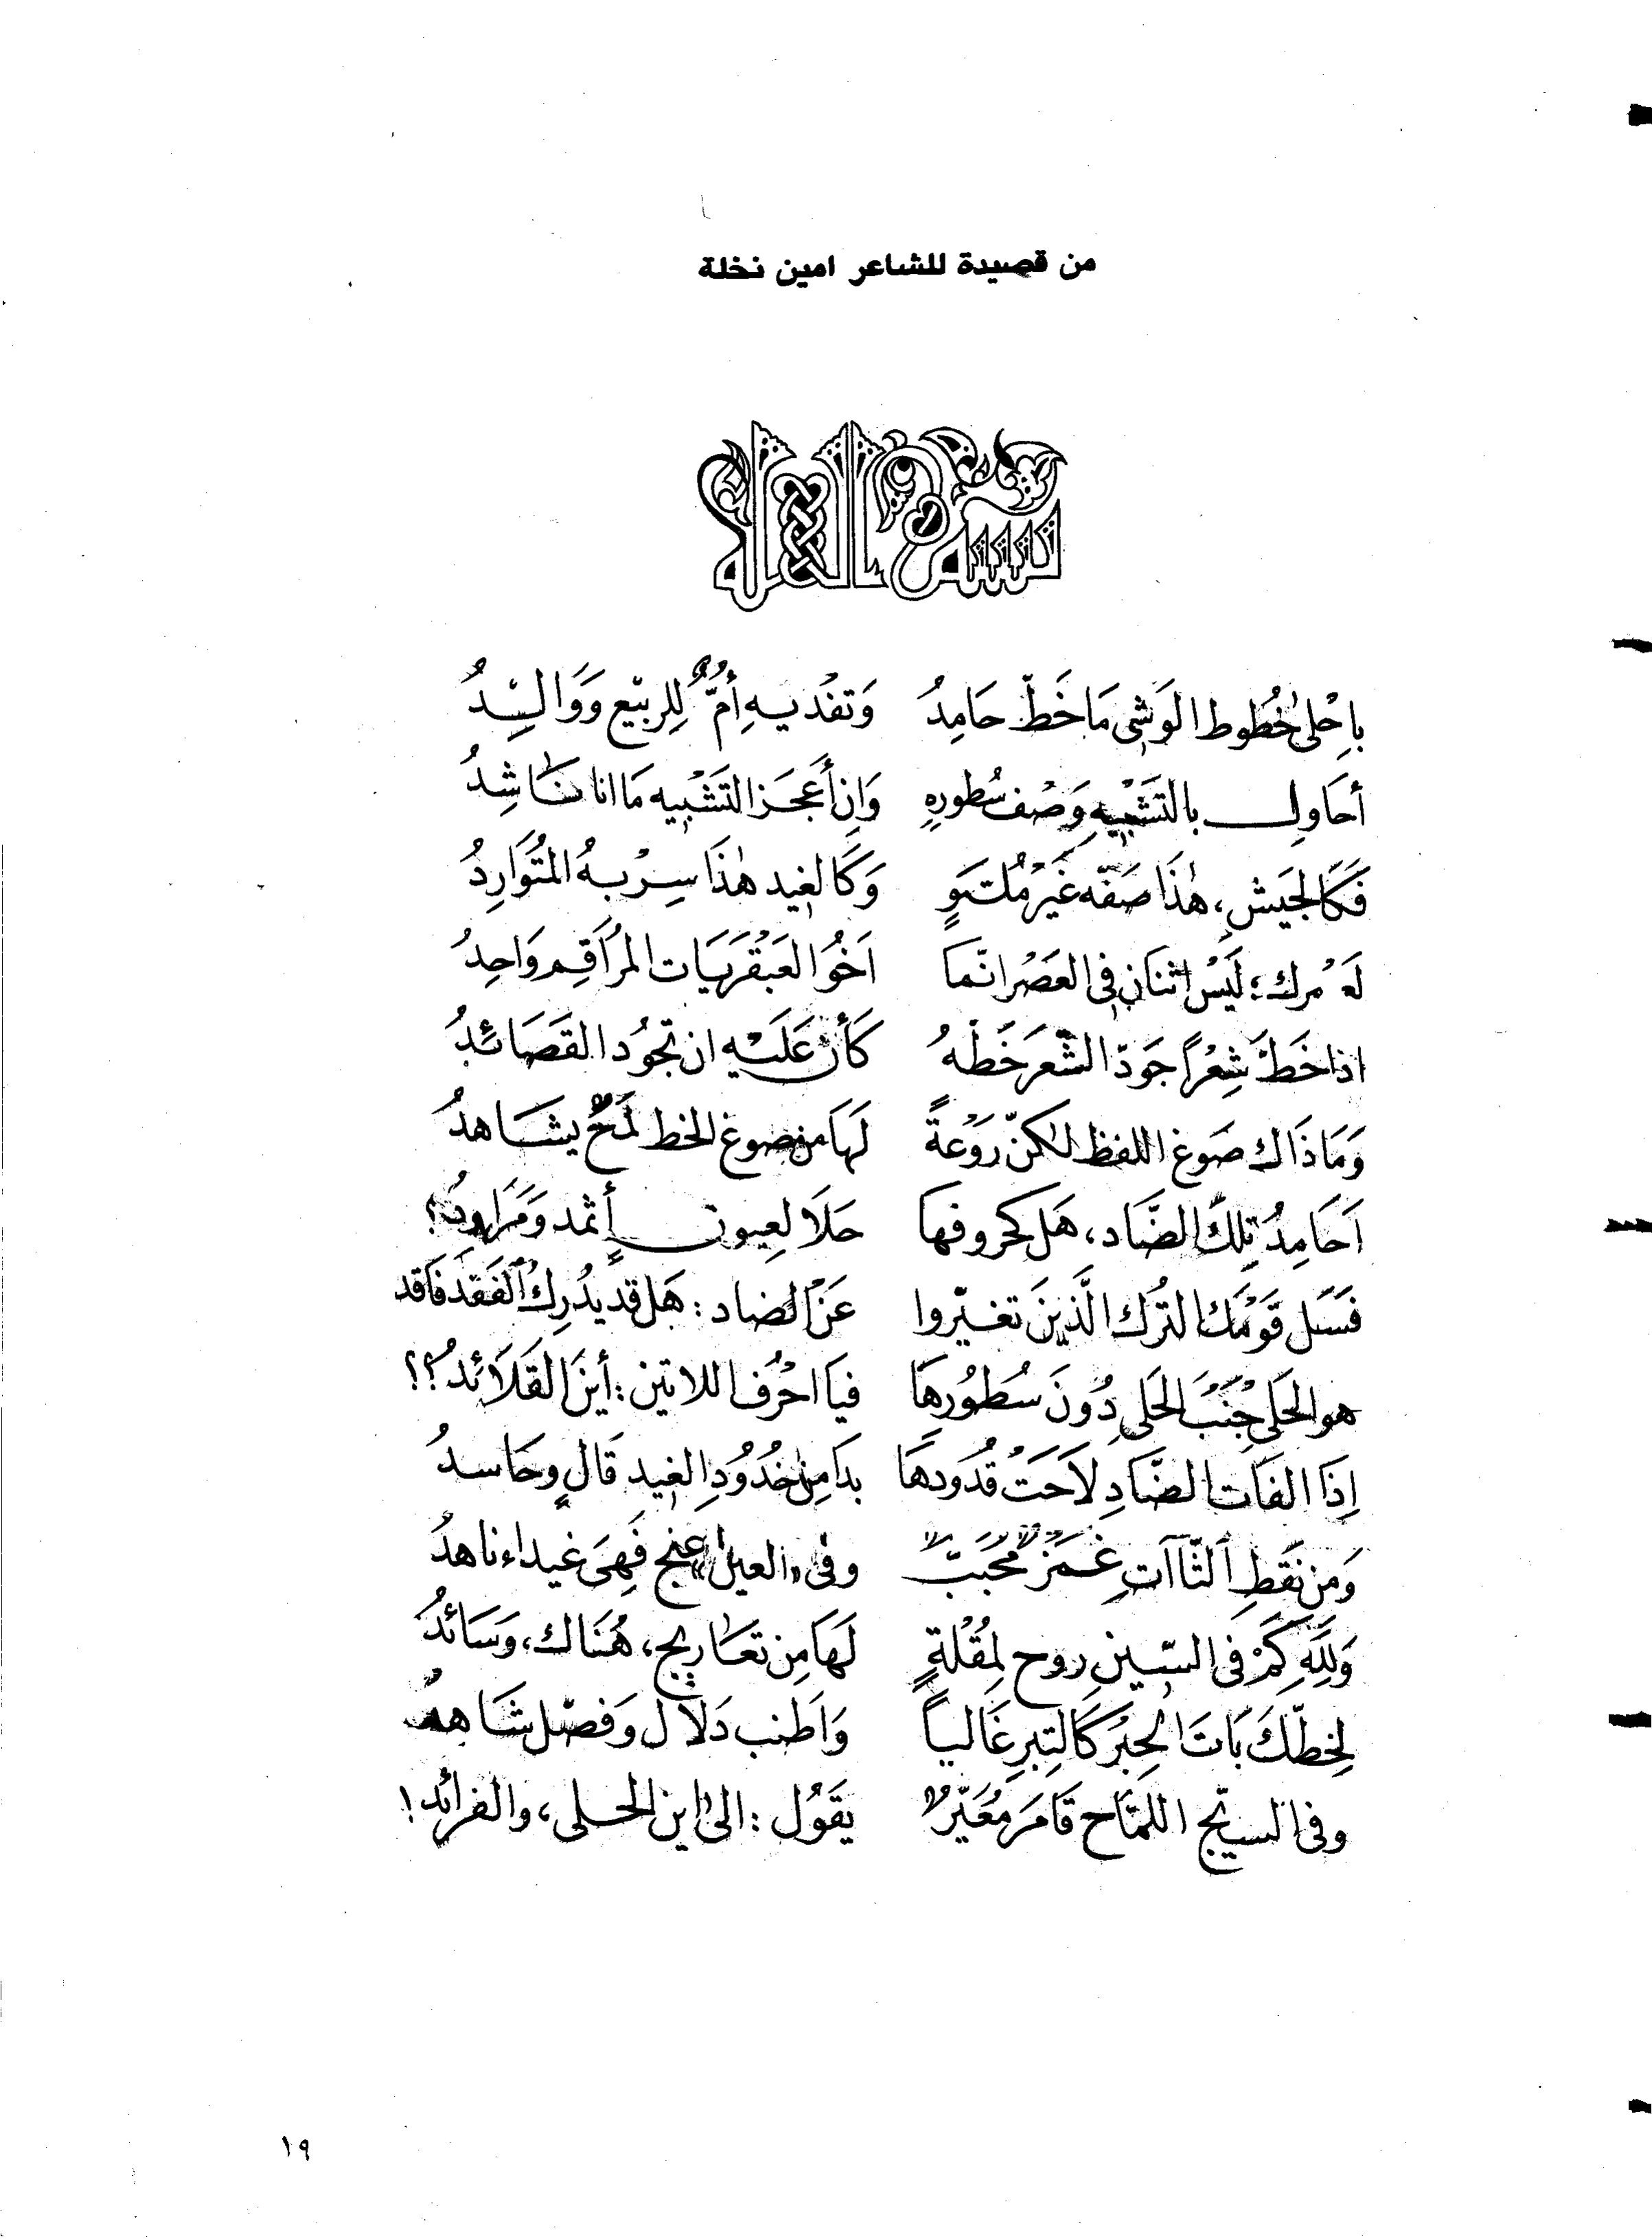 من قصيدة للشاعر امين نخلة
بسم الله
بِاحْلىٰ خُطُوط الوَشِي مَا خَطّ حَامِدُ وَتَفْديهِ أُمٌّ لِلربيْع وَوَالِدُ
أحَاول بالتَشْبيهِ وَصْف سُطورِهِ وَإن أَعجَز التَشْبيه مَا انا نَاشِدُ
فَكَالجَيش، هٰذَا صَفّه غَيْر مُلتَوٍ وَكَالغِيد هٰذَا سِرْبهُ المُتَوَارِدُ
لَعَمْرك؛ لَيْسَ اثنَان في العَصْر انّما اَخُو العَبْقَريَات المُرَاقِم وَاحِدُ
اذا خَطّ شِعْراً جَوّدَ الشّعْرَ خَطّهُ كَأن عَلَيْهِ ان تجُودَ القَصَائدُ
وَمَا ذَاك صَوغ اللفظ لكنّ رَوْعةً لَهَا من صوغ الخط لَمْحٌ يشَاهدُ
اَحَامِدُ تِلكَ الضَّاد، هَل كحروفها حَلَا لِعِيون أثمد وَمَرَاودُ؟
فَسَل قَوْمَكَ التُرْك الَّذينَ تغيّروا عَن الضاد: هَل قد يُدْرِكُ الفَقدَ فَاقد
هو الحَلي جنْبَ الحَلي دُونَ سُطُورِهَا فيَا احْرُف اللاتين: أينَ القَلَائدُ؟؟
إذَا الفَات الضَّادِ لَاحَتْ قُدُودهَا بدَا مِن خُدُودِ الغِيد قَالٍ وحَاسدُ
وَمن نُقَطِ الثَّاآتِ غَمْزٌ مُحَبَّبٌ وفى «العين» غنج فَهيَ غيداء ناهدُ
وَلِلّهِ كَمْ فى السّينِ روح لِمُقْلةٍ لَهَا مِن تعَاريج، هُنَاك، وَسَائدُ
لِخَطّكَ بَاتَ الحِبْر كَالتِبرِ غَالياً وَاَطنب دَلّال وَفصّل شَاهدُ
وفى السبج اللمّاح قَامَ مُعَيّرٌ يقَوُل: الىّ اين الحلى، والفرائد!
١٩